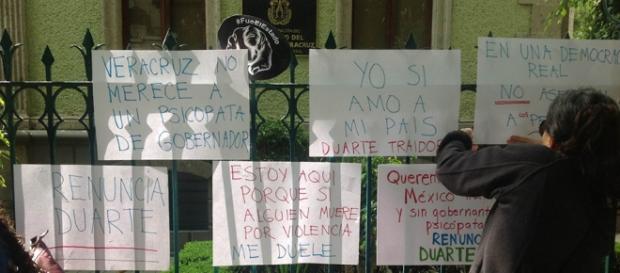 #FueElEstado
VERACRUZ NO
MERECE A
UN PSICOPATA
DE GOBERNADOR
YO SI
AMO A
MI PAIS
DUARTE TRAIDOR
EN UNA DEMOCRA
REAL
NO ASE
A
RENUNCIA
DUARTE
ESTOY AQUI
PORQUE SI
ALGUIEN MUERE
POR VIOLENCIA
ME DUELE
Querem
México
y sin gobernant
psicópata
RENUNC
DUARTE